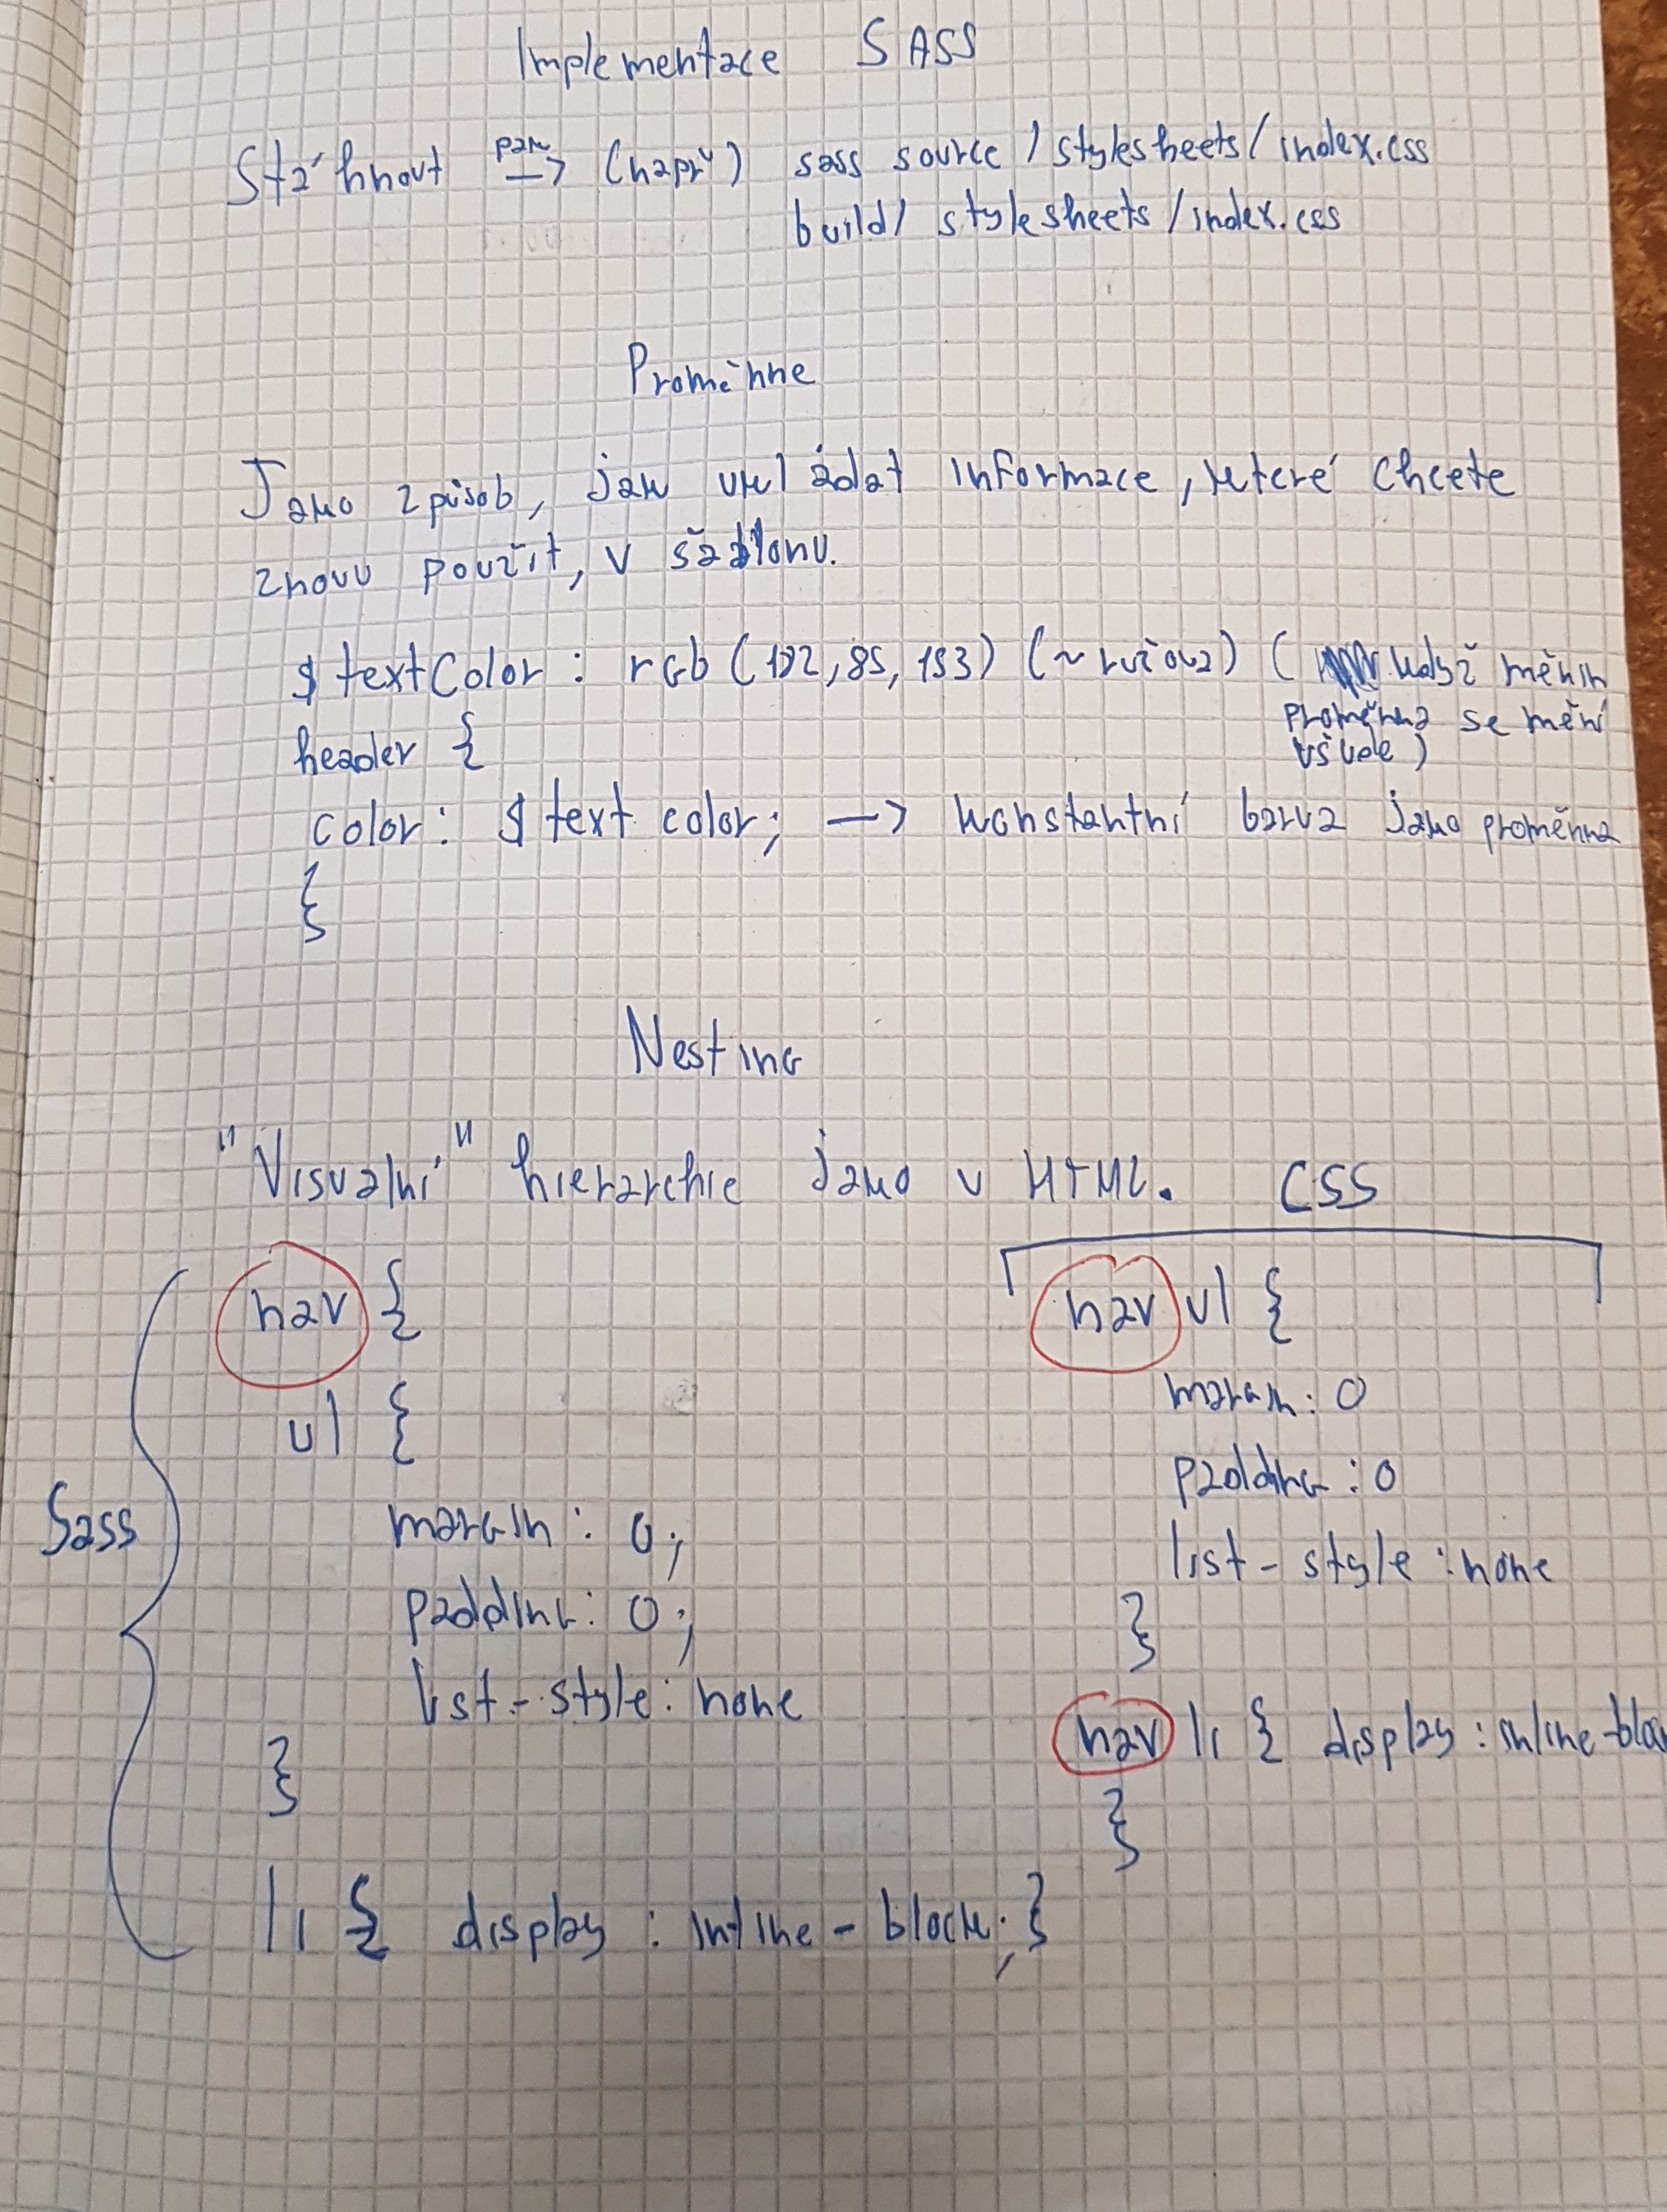 Implementace SASS
Stáhnout pak → (např) sass source/stylesheets/index.css
build/stylesheets/index.css
Proměnne
Jako způsob, jak ukládat informace, které chcete
znovu použít, v šablonu.
$textColor: rgb( ,85, ) (~ružova) ( když měnin
proměnna se mění
všude)
header {
color: $text color; → konstantní barva jako proměnna
}
Nesting
"Visualní" hierarchie jako v HTML. CSS
nav {
ul {
margin: 0;
padding: 0;
list-style: none
}
li { display: inline-block; }
Sass
nav ul {
margin: 0
padding: 0
list-style: none
}
nav li { display: inline-bloc
}